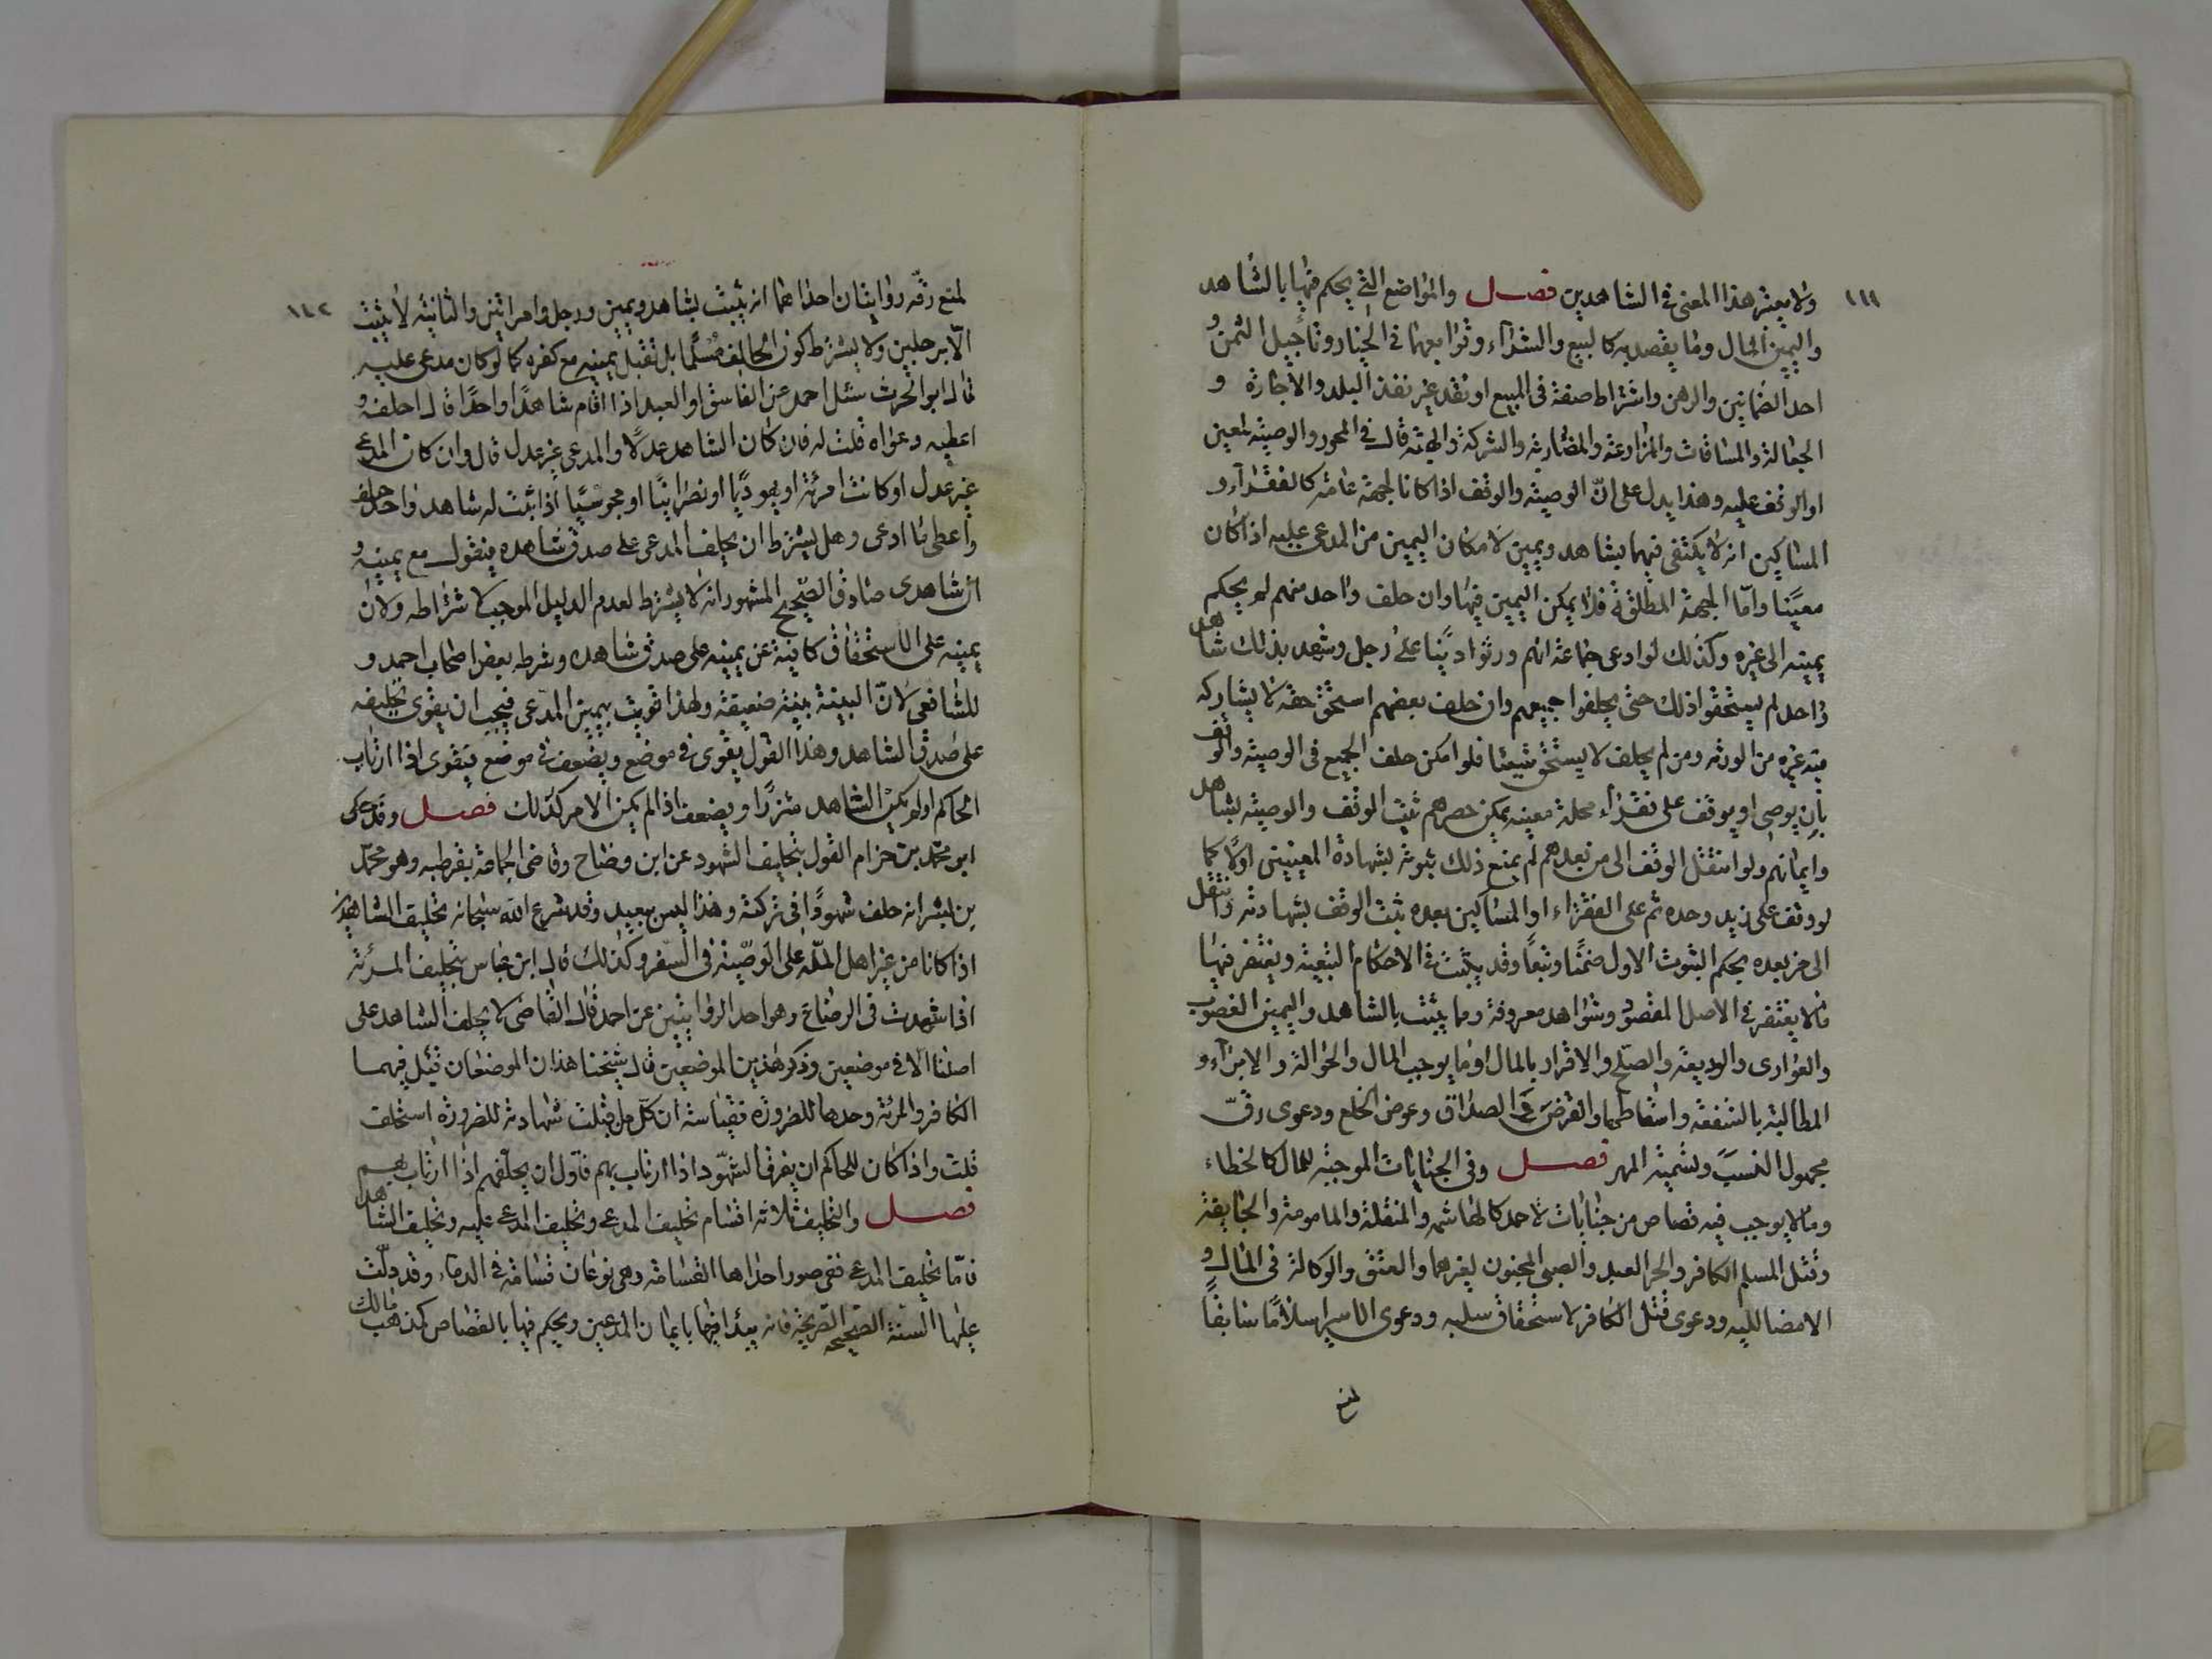 ١٤١
ولا يعتبر هذا المعنى في الشاهدين فصل والمواضع التي يحكم فيها بالشاهد
واليمين المال وما يقصد به كالبيع والشراء وتوابعهما في الخيار وتاجيل الثمن و
احد الضمانين والرهن واشتراط صفة في المبيع او نقد غير نقد البلد والاجارة و
الجعالة والمساقات والمزارعة والمضاربة والشركة والهبة قال في المحرر والوصية لمعين
او الوقف عليه وهذا يدل على انّ الوصية والوقف اذا كانا لجهة عامة كالفقرآء و
المساكين انه لا يكتفى فيهما بشاهد ويمين لامكان اليمين من المدعى عليه اذا كان
معيّنا وامّا الجهة المطلقة فلا يمكن اليمين فيها وان حلف واحد منهم لم يحكم
يمينه الى غيره وكذلك لو ادعى جماعة انهم ورثوا دينا على رجل وشهد بذلك شاهد
واحد لم يستحقوا ذلك حتى يحلفوا جميعهم وان حلف بعضهم استحق حقه لا يشاركه
فيه غيره من الورثه ومن لم يحلف لا يستحق شيئا فلو امكن حلف الجميع في الوصية والوقف
بان يوصي او يوقف على فقراء محلة معينه يمكن حصرهم ثبت الوقف والوصية بشاهد
وايمانهم ولو انتقل الوقف الى من بعدهم لم يمنع ذلك ثبوته بشهادة المعينين اولًا كما
لو وقف على زيد وحده ثم على الفقراء او المساكين بعده يثبت الوقف بشهادته وانتقل
الى من بعده بحكم الثبوت الاول ضمنًا وتبعًا وقد يثبت في الاحكام التبعية ويغتفر فيها
ما لا يغتفر في الاصل المقصود وشواهد معروفة ومما يثبت بالشاهد واليمين الغصوب
والعوارى والوديعة والصلح والاقرار بالمال او ما يوجب المال والحوالة والابرآء و
المطالبة بالشفعة واسقاطها والقرض في الصداق وعوض الخلع ودعوى رقّ
مجهول النسب وتسمية المهر فصل وفي الجنايات الموجبه للمال كالخطاء
وما لا يوجب فيه قصاص من جنايات لاحمد كالهاشمه والمنقلة والمامومة والجايفة
وقتل المسلم الكافر والحر العبد والصبي المجنون لغيرهما والعتق والوكالة في المال و
الايصا اليه ودعوى قتل الكافر لاستحقاق سلبه ودعوى الاسير اسلامًا سابقًا
لمنع
١٤٢
لمنع رقّه روايتان احداهما انه يثبت بشاهد ويمين ورجل وامراتين والثانية لا يثبت
الّا برجلين ولا يشترط كون الحالف مسلما بل تقبل يمينه مع كفره كما لو كان مدعى عليه
قال ابو الحرث سئل احمد عن الفاسق او العبد اذا اقام شاهدًا واحدًا قال احلفه و
اعطيه دعواه قلت له فان كان الشاهد عدلًا والمدعى غير عدل قال وان كان المدعي
غير عدل او كانت امرئة او يهوديًّا او نصرانيًّا او مجوسيًّا اذا ثبت له شاهد واحد حلف
واعطى ما ادعى وهل يشترط ان يحلف المدعى على صدق شاهده فيقول مع يمينه و
ان شاهدى صادق الصحيح المشهور انه لا يشترط لعدم الدليل الموجب لاشتراطه ولان
يمينه على الاستحقاق كافية عن يمينه على صدق شاهده وشرطه بعض اصحاب احمد و
للشافعي لانّ البينة بينة ضعيفة ولهذا قويت بيمين المدعى فيجب ان يقوى بحليفه
على صدق الشاهد وهذا القول يقوى في موضع ويضعف في موضع فيقوى اذا ارتاب
الحاكم او لم يكن الشاهد مبرزًا ويضعف اذا لم يكن الامر كذلك فصل وقد حكى
ابو محمد بن حزام القول بتحليف الشهود عن ابن وضاح وقاضى الجماعة بقرطبه وهو محمّد
بن بشر انه حلف شهودًا في تركة وهذا ليس ببعيد وقد شرع الله سبحانه تحليف الشاهدين
اذا كانا من غير اهل الملّه على الوصّية في السفر وكذلك قال ابن عباس بتحليف المرئة
اذا شهدت فى الرضاع وهو احد الروايتين عن احمد قال القاضى لا يحلف الشاهد على
اصلنا الا في موضعين وذكر هذين الموضعين قال شيخنا هذان الموضعان قبل فيهما
الكافر والمرئة وحدها للضرورة فقياسه ان كلّ من قبلت شهادته للضرورة استحلف
قلت واذا كان للحاكم ان يفرق الشهود اذا ارتاب بهم فاولى ان يحلفهم اذا ارتاب بهم
فصل والتحليف ثلاثة اقسام تحليف المدعي وتحليف المدعى عليه وتحليف الشاهد
فامّا تحليف المدعي ففي صور احداها القسامة وهي نوعان قسامة في الدماء وقد دلّت
عليها السنّة الصحيحه الصريحة فانه يبدأ فيها بايمان المدعين ويحكم فيها بالقصاص كمذهب مالك